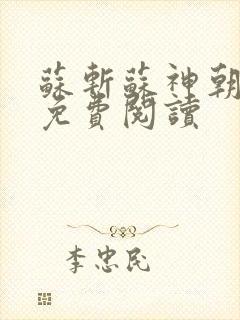 蘇斬蘇神朝
免費閱讀
李忠民